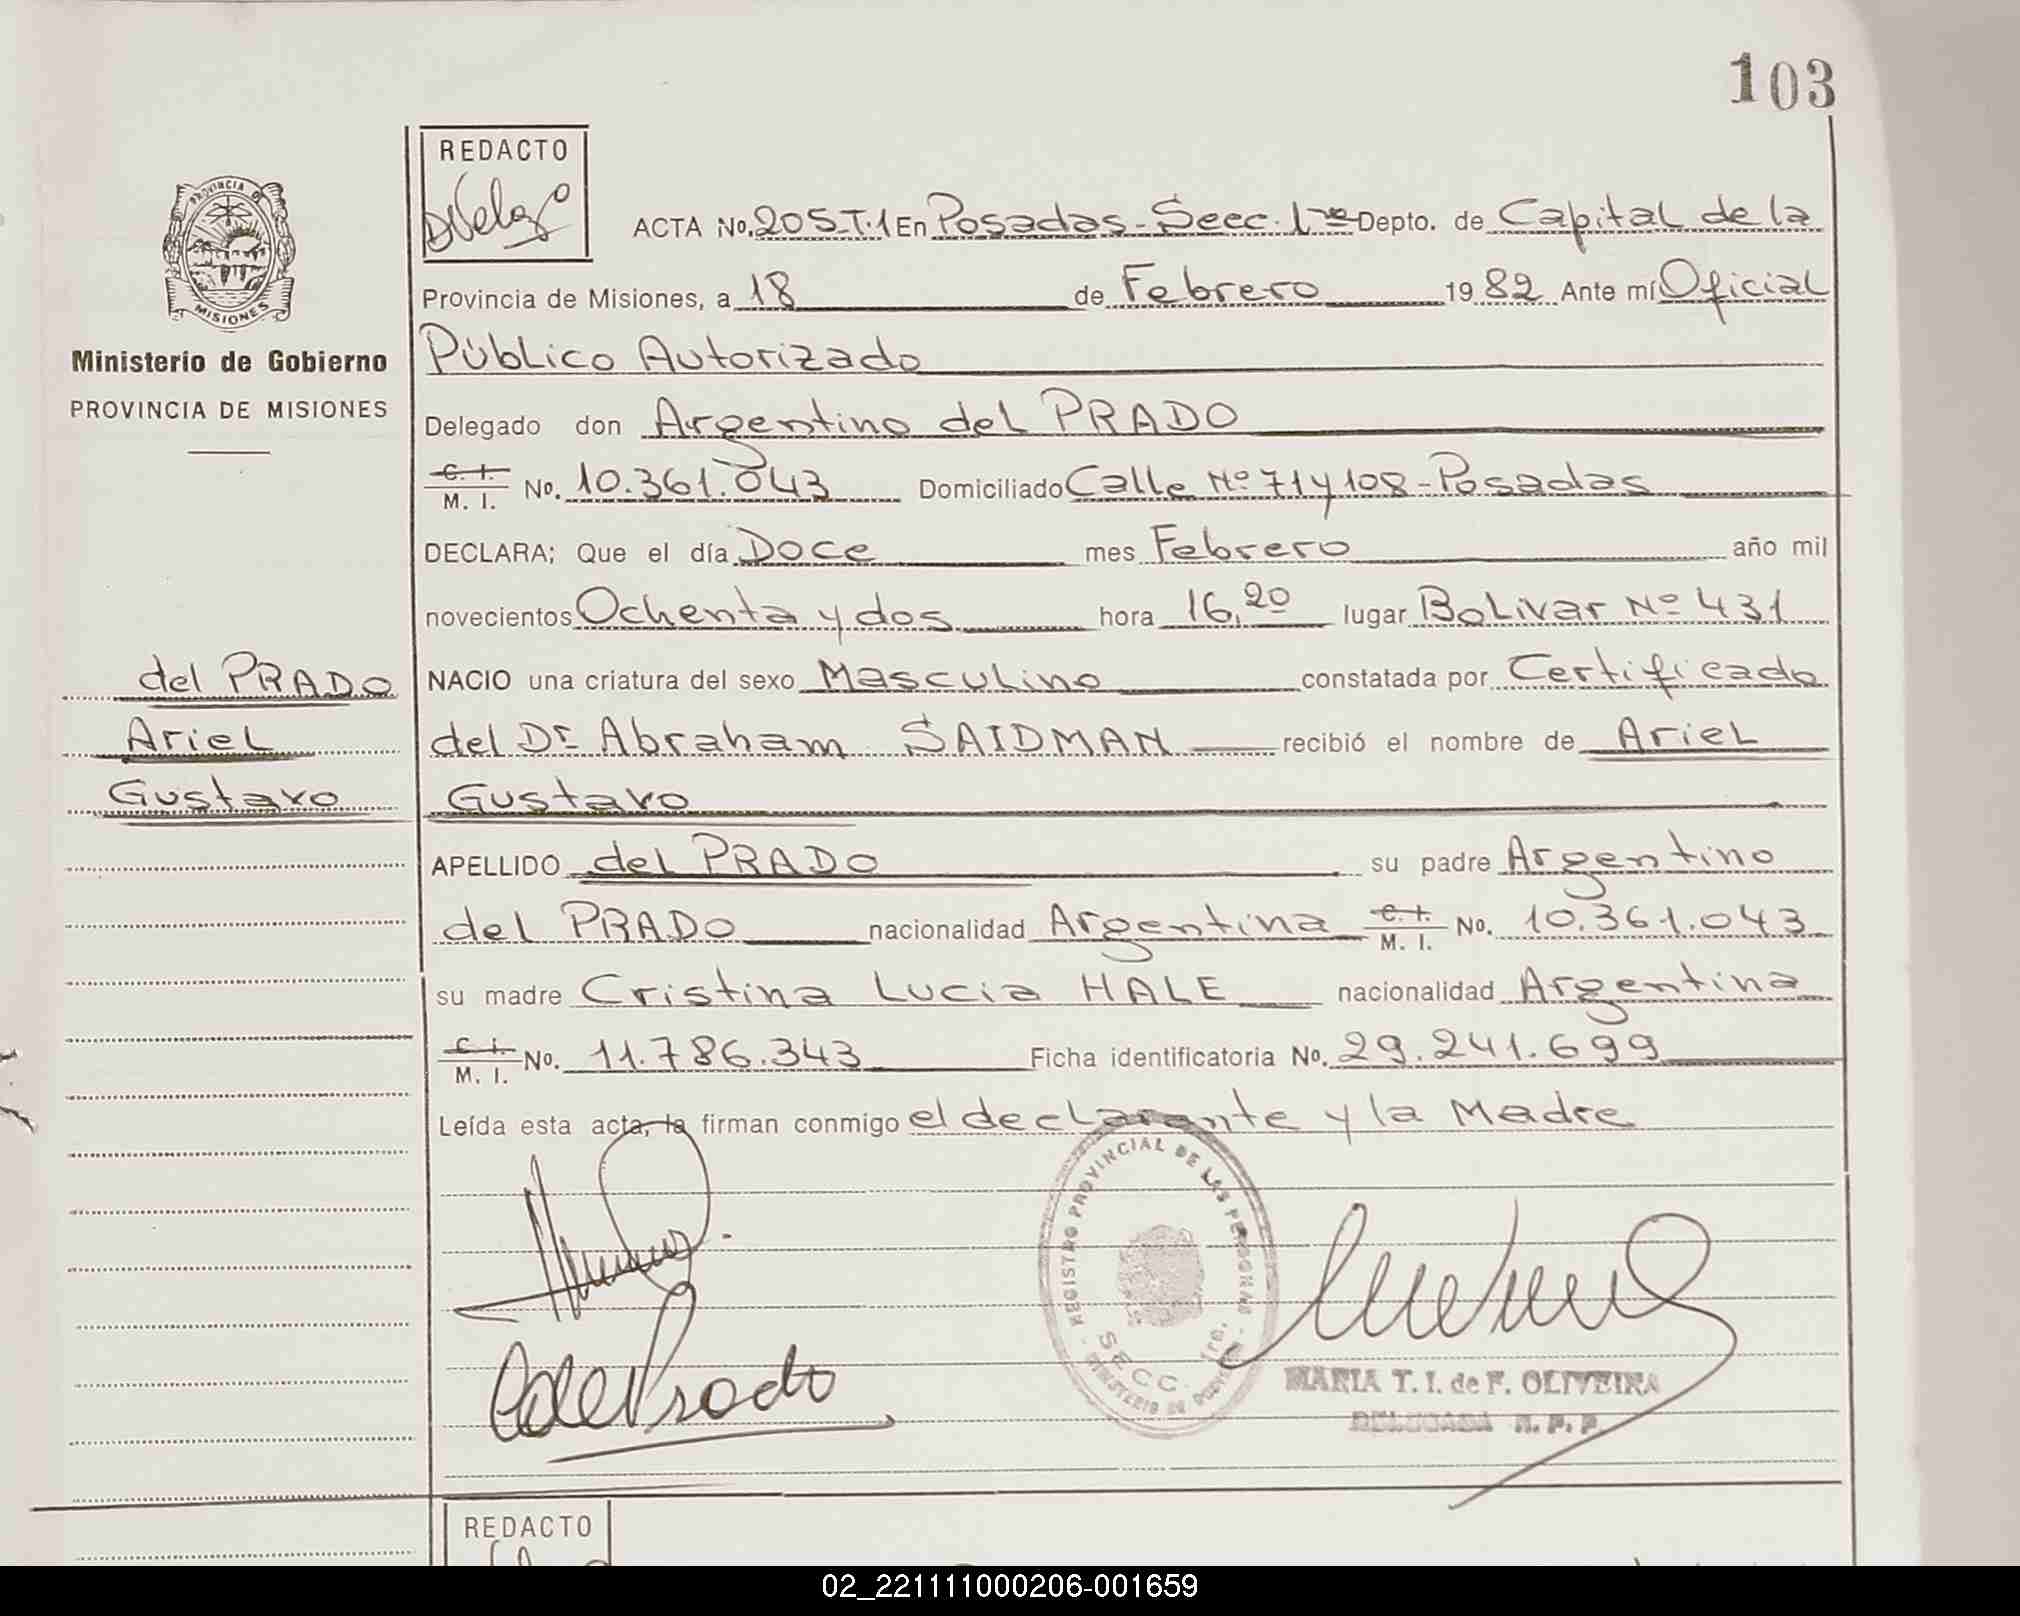 103
REDACTO
PROVINCIA DE
MISIONES
Ministerio de Gobierno
PROVINCIA DE MISIONES
ACTA No. 205-T.1 En Posadas-Secc. 1ra Depto. de Capital de la
Provincia de Misiones, a 18 de Febrero 1982 Ante mí Oficial
Público Autorizado
Delegado don Argentino del PRADO
C. I. / M. I. No. 10.361.043 Domiciliado Calle Nº 71 y 108-Posadas
DECLARA; Que el día Doce mes Febrero año mil
novecientos Ochenta y dos hora 16,20 lugar Bolivar Nº 431
del PRADO
Ariel
Gustavo
NACIO una criatura del sexo Masculino constatada por Certificado
del Dr. Abraham SAIDMAN recibió el nombre de Ariel
Gustavo
APELLIDO del PRADO su padre Argentino
del PRADO nacionalidad Argentina C. I. / M. I. No. 10.361.043
su madre Cristina Lucia HALE nacionalidad Argentina
C. I. / M. I. No. 11.786.343 Ficha identificatoria No. 29.241.699
Leída esta acta, la firman conmigo el declarante y la Madre
REGISTRO PROVINCIAL DE LAS PERSONAS
SECC. 1ra.
MINISTERIO DE GOBIERNO
CdelPrado
MARIA T. I. de F. OLIVEIRA
DELEGADA R. P. P.
REDACTO
02_221111000206-001659